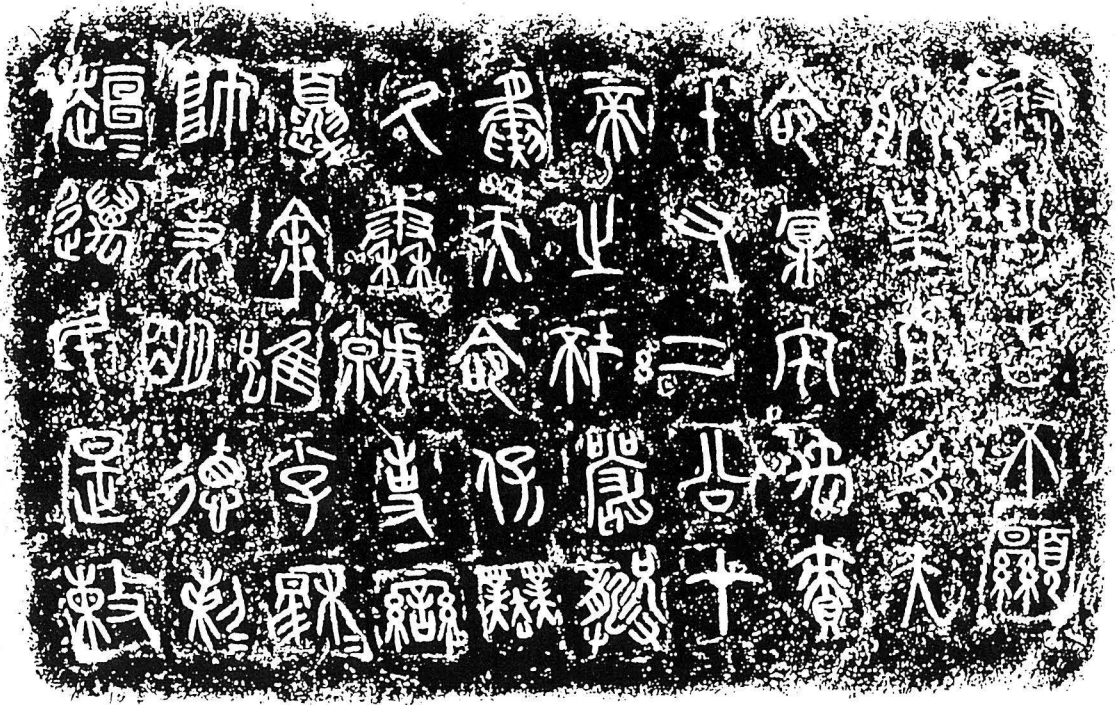 秦公曰不顯
朕皇且受天
命鼏宅禹責
十又二公才
帝之坯嚴龏
夤天命保業
氒秦虩事蠻
夏余雖小子穆=
帥秉明德剌=
趄=萬民是敕